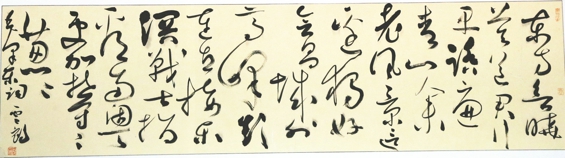 東方欲曉
莫道君行
早踏遍
青山人未
老风景这
边独好
会昌城外
高峰颠
连直接东
溟战士指
看南粤
更加郁々
葱々